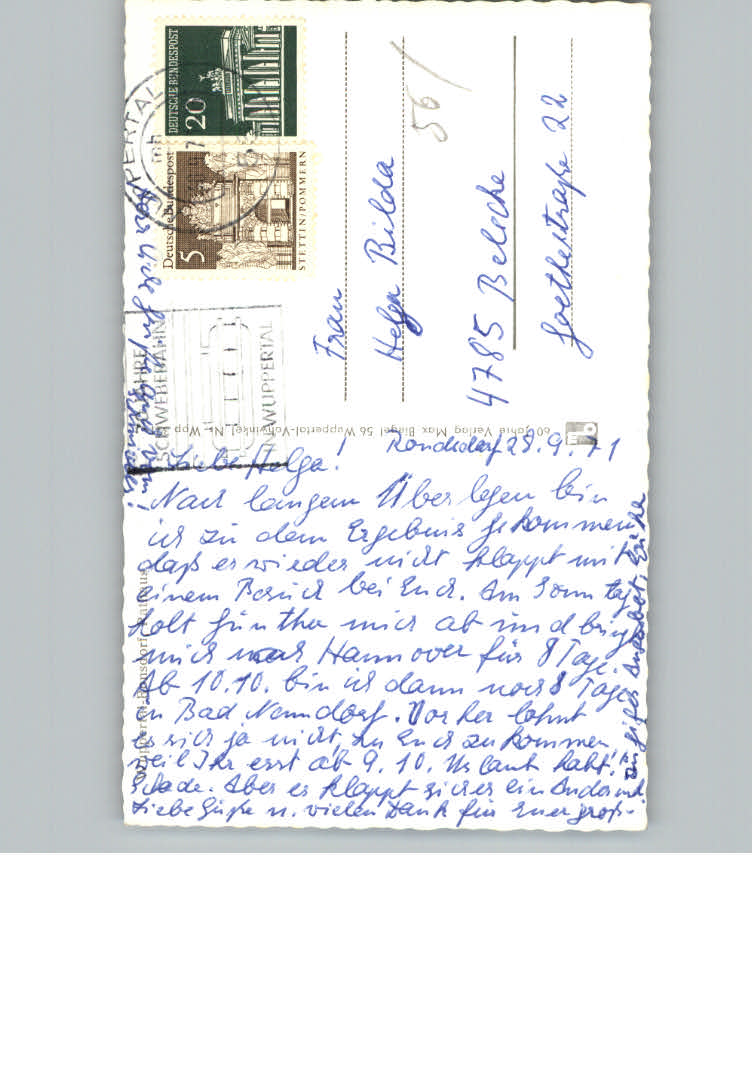 Ronsdorf 28.9.71
Liebe Helga!
Nach langem Überlegen bin
ich zu dem Ergebnis gekommen
daß es wieder nicht klappt mit
einem Besuch bei Euch. Am Sonntag
holt Günther mich ab und bringt
mich nach Hannover für 8 Tage.
Ab 10.10. bin ich dann noch 8 Tage
in Bad Nenndorf. Vorher lohnt
es sich ja nicht, zu Euch zu kommen,
weil Ihr erst ab 9.10. Urlaub habt!
Schade. Aber es klappt sicher ein Andermal.
Liebe Grüße u. vielen Dank für Euer groß-
zügiges Angebot. Erika
Frau
Helga Bilda
4785 Belecke
Goethestraße 22
56/
DEUTSCHE BUNDESPOST
20
Deutsche Bundespost
5
STETTIN/POMMERN
WUPPERTAL
JAHRE
SCHWEBEBAHN
IN WUPPERTAL
60 Jahre Verlag Max Biegel 56 Wuppertal-Vohwinkel, Nr. Wpp
mb
Wuppertal-Ronsdorf, Rathaus